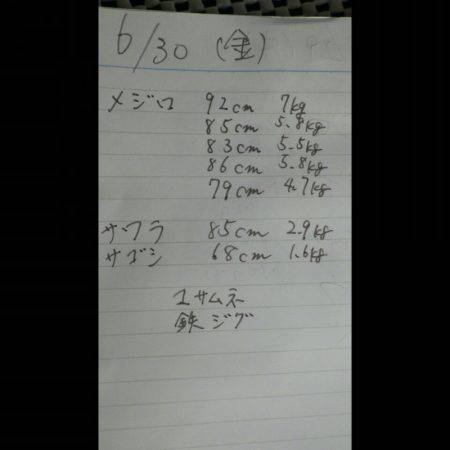 6/30 (金)
メジロ 92cm 7kg
85cm 5.8kg
83cm 5.5kg
86cm 5.8kg
79cm 4.7kg
サワラ 85cm 2.9kg
サゴシ 68cm 1.6kg
ユサムネ
鉄ジグ